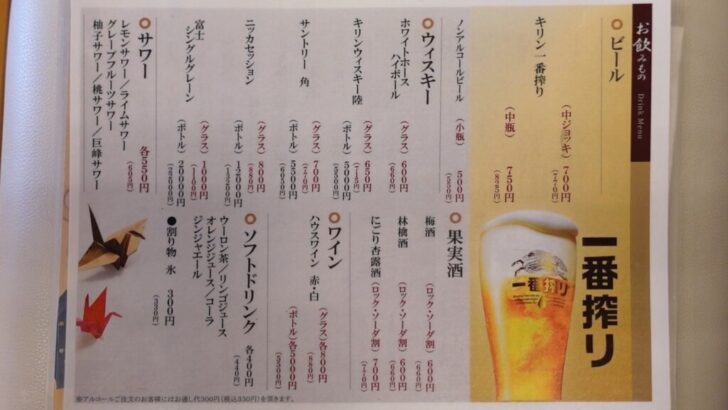 お飲みもの Drink Menu
ビール
キリン一番搾り
（中ジョッキ）700円
（770円）
（中瓶）750円
（825円）
ノンアルコールビール
（小瓶）500円
（550円）
ウィスキー
ホワイトホース
ハイボール
（グラス）600円
（660円）
キリンウィスキー陸
（グラス）650円
（715円）
（ボトル）5000円
サントリー 角
（グラス）700円
（770円）
（ボトル）5500円
（6050円）
ニッカセッション
（グラス）800円
（880円）
（ボトル）12000円
（13200円）
富士
シングルグレーン
（グラス）1000円
（1100円）
（ボトル）20000円
（22000円）
サワー
レモンサワー／ライムサワー
グレープフルーツサワー
柚子サワー／桃サワー／巨峰サワー
各550円
（605円）
一番搾り
一番搾り
果実酒
梅酒
（ロック・ソーダ割）600円
（660円）
林檎酒
（ロック・ソーダ割）600円
（660円）
にごり杏露酒
（ロック・ソーダ割）700円
（770円）
ワイン
ハウスワイン 赤・白
（グラス）各800円
（880円）
（ボトル）各5000円
（5500円）
ソフトドリンク
ウーロン茶／リンゴジュース
オレンジジュース／コーラ
ジンジャエール
各400円
（440円）
●割り物 氷 300円
（330円）
※アルコールご注文のお客様にはお通し代300円（税込330円）を頂きます。